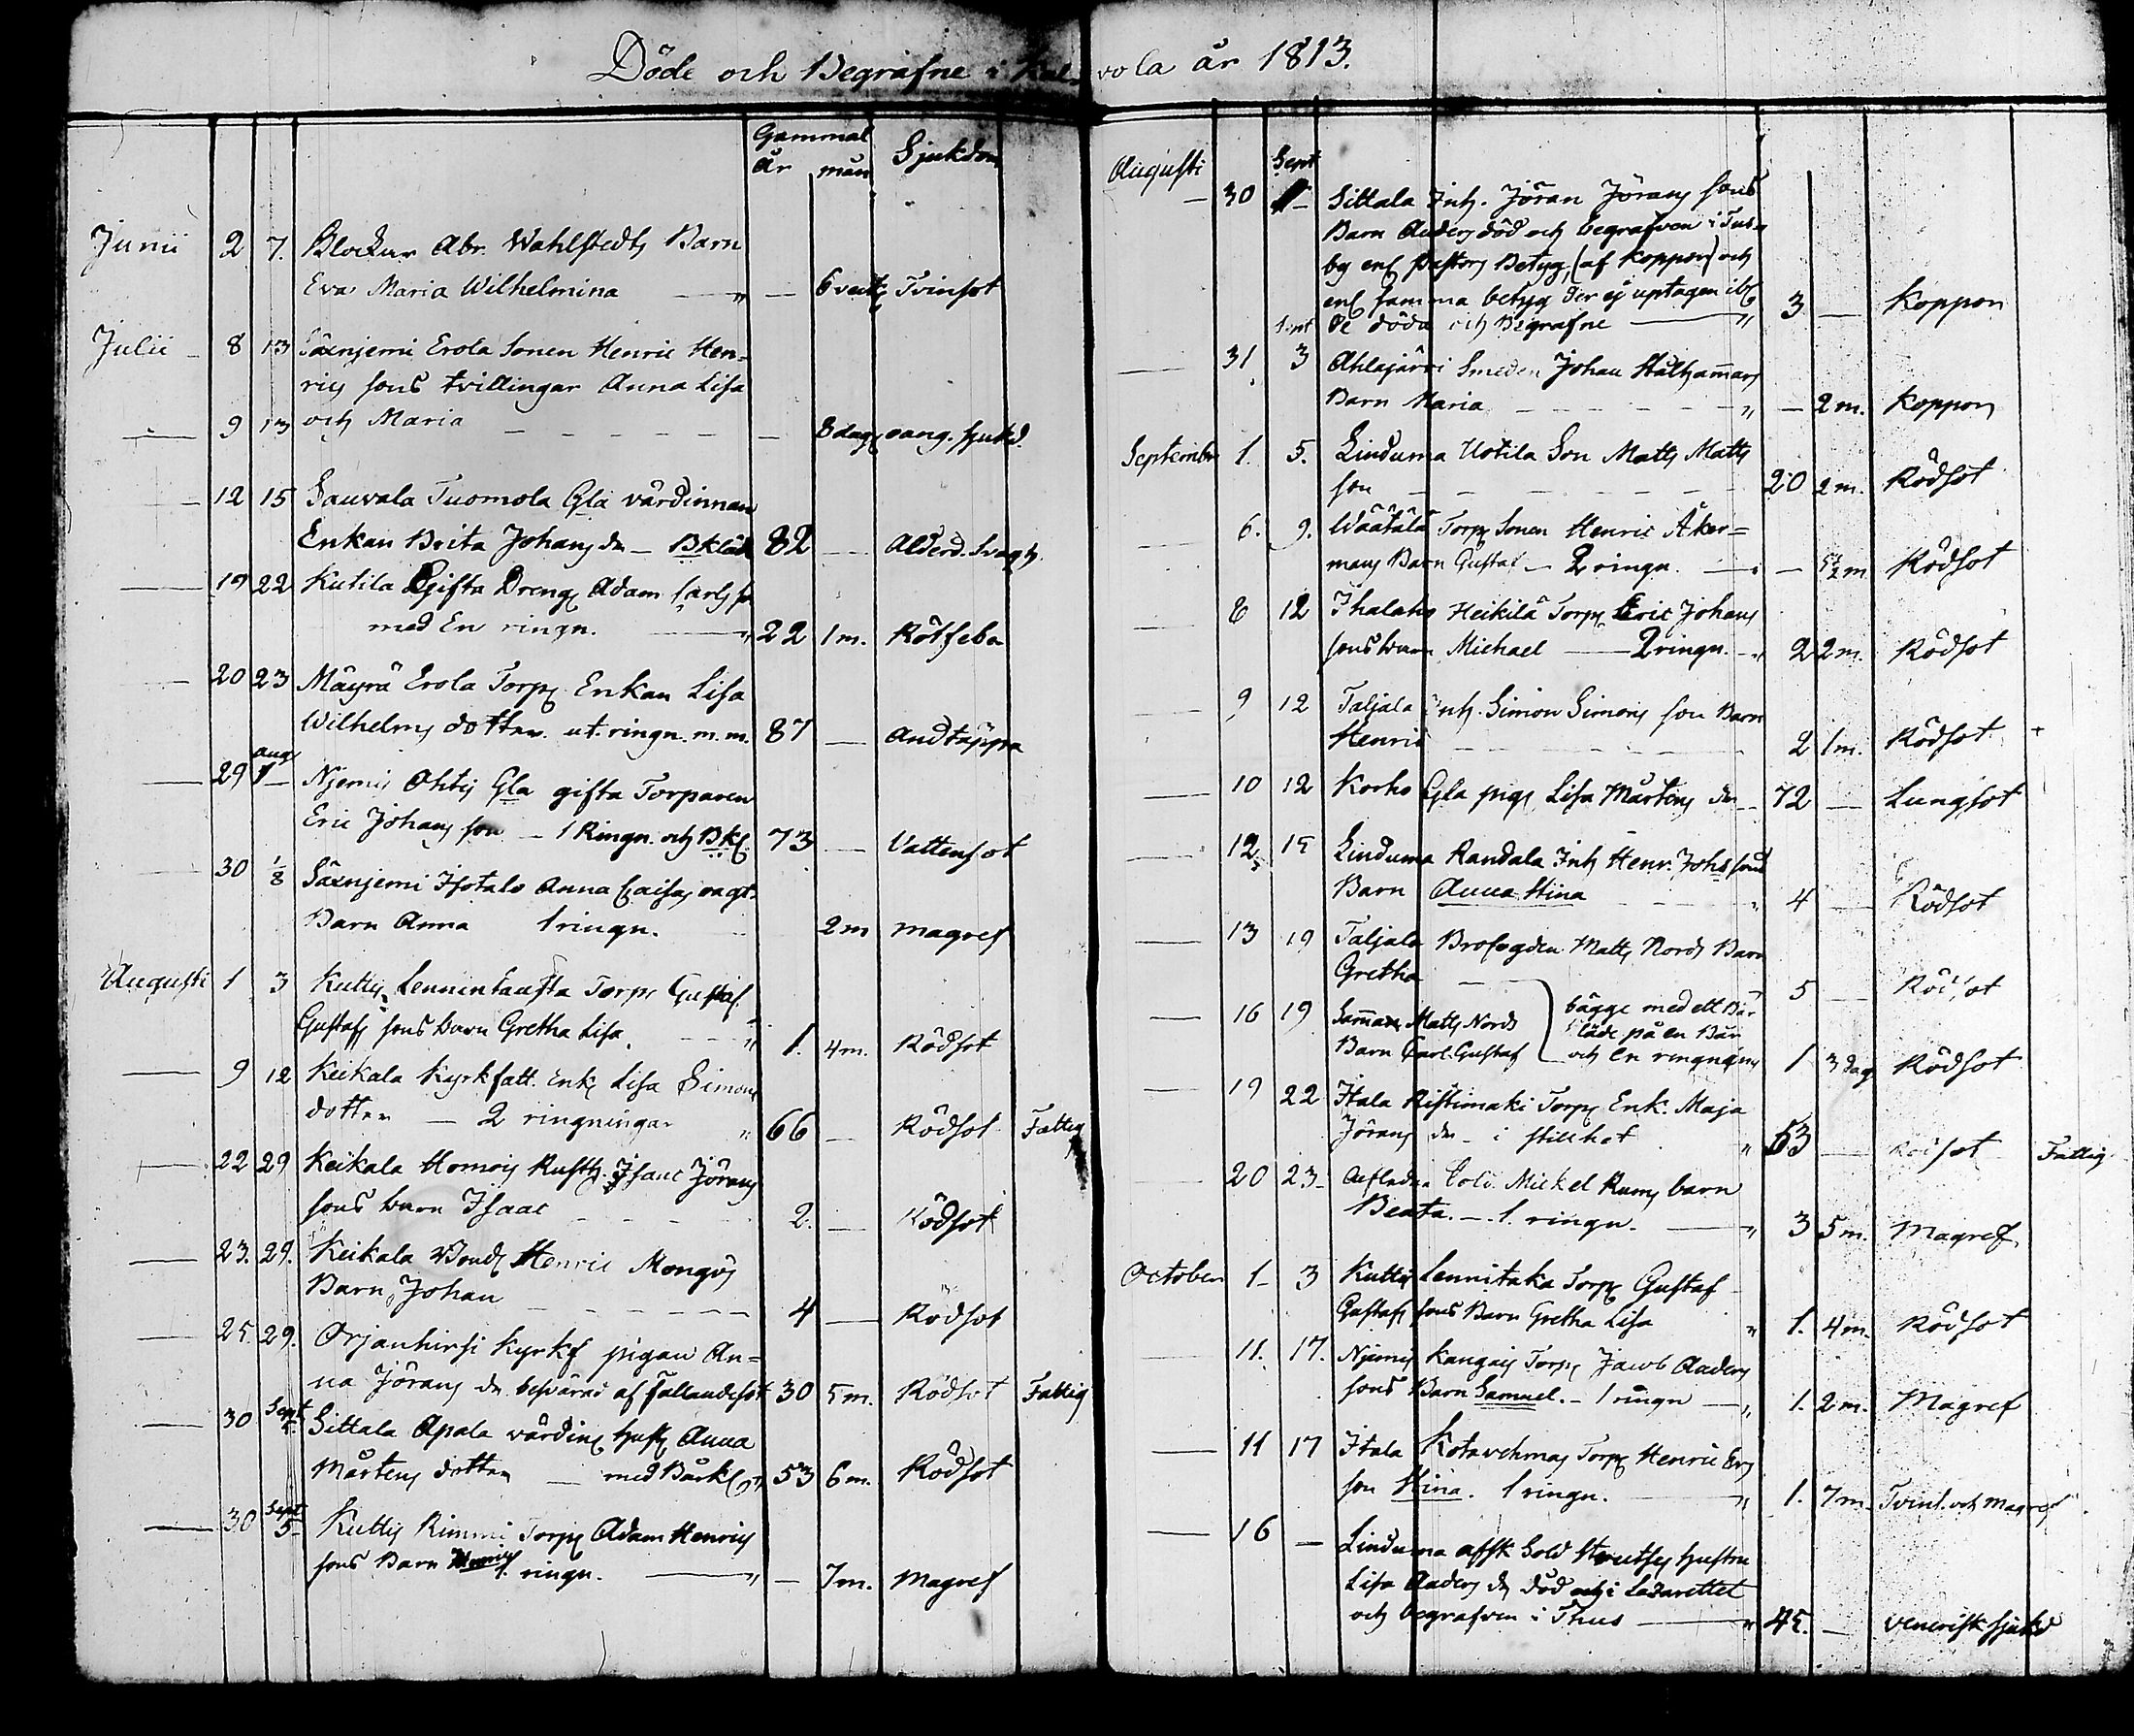 Döde och Begrafne i Kalvola år 1813.
Gammal
år mån Sjukdom
Junii 2 7. Blockus Abr. Wahlstedts Barn
Eva Maria Wilhelmina — " — 6 veck Tvinsot
Julii 8 13 Säxnjemi Erola Sonen Henric Hen=
rics sons tvillingar Anna Lisa
9 13 och Maria — 8 dag oang. sjukd.
12 15 Sauvala Tuomola Gla värdinnan
Enkan Brita Johans dr — Bkläde 82 — Ålderd. Svagh.
19 22 Kutila Ogifta Dreng Adam Carls son
med En ringn. " 22 1 m. Rötfeber
20 23 Mäyrä Erola Torp. Enkan Lisa
Wilhelms dotter. ut. ringn. m. m. 87 — Andtäppa
aug
29 1 Njemis Ohtis Gla gifta Torparen
Eric Johans son — 1 Ringn. och Bkl. 73 — Vattensot
30 1/8 Säxnjemi Isotalo Anna Caisas oagt.
Barn Anna 1 ringn. 2 m magref
Augusti 1 3 Kuttis Lennintausta Torp. Gustaf
Gustafs sons barn Gretha Lisa " 1. 4 m. Rödsot
9 12 Keikala Kyrkfatt. Enk. Lisa Simons
dotter — 2 ringningar " 66 — Rödsot Fattig
22 29 Keikala Homois Rusth. Isaac Jörans
sons barn Isaac 2. — Rödsot
23. 29. Keikala Bonde Henric Mongos
Barn Johan 4 — Rödsot
25. 29. Orjanhirsi Kyrkf pigan An=
na Jörans dr. besvärad af fallandesot 30 5 m. Rödsot Fattig
Sept
30 Sittala Apala värdins hust. Anna
Mårtens dotter — med Bårkl " 53 6 m. Rödsot
Sept
30 5 Kuttis Rimmi Torp. Adam Henrics
sons Barn Henric 1. ringn. — " — 7 m. Magref
Augusti Sept
30 1 Sittala Inh. Jöran Jörans sons
Barn Anders död och begrafven i Tus-
by enl Pastors Betyg, (af koppor) och
enl samma betyg der ej uptagen ibl
de döda och Begrafne — " 3 — Koppon
Sept
31 3 Ahlajärvi Smeden Johan Stålhamars
Barn Maria " — 2 m. Koppor
September 1. 5. Linduma Uotila Son Matts Matts
son 20 2 m. Rödsot
6. 9. Wäätälä Torp. Sonen Henric Åker=
mans Barn Gustaf — 2 ringn. — 5 1/2 m Rödsot
8 12 Ihalaho Heikilä Torp. Eric Johans
sons barn Michael — 2 ringn. " 2 2 m. Rödsot
9 12 Taljala Inh. Simon Simons son Barn
Henric 2 1 m. Rödsot
10 12 Korho Gla pig. Lisa Mårtens dr 72 — Lungsot
12 15 Linduma Randala Inh Henr. Johs sons
Barn Anna Stina " 4 — Rödsot
13 19 Taljala Brofogden Matts Nords Barn
Gretha — 5 — Rödsot
bägge med ett Bår
16 19 Samma Matts Nords kläde på en Bår
Barn Carl Gustaf och en ringning 1 3 dag Rödsot
19 22 Itala Ristimaki Torp. Enk. Maja
Jörans dr. i stillhet " 53 — Rödsot Fattig
20 23 Aflidne Sold. Mickel Rums barn
Beata. — 1. ringn. — " 3 5 m. Magref
October 1 3 Kuttis Lennitaka Torp. Gustaf
Gustafs sons Barn Gretha Lisa " 1. 4 m. Rödsot
11. 17. Njemis Kangais Torp. Jacob Anders
sons Barn Samuel. — 1 ringn — " 1. 2 m. Magref
11 17 Itala Kotavehmas Torp. Henric Ers
son Stina. 1 ringn. — " 1. 7 m. Tvins. och magref
16 — Linduma affsk Sold hustru
Lisa Anders dr död i Lazarettet
och begrafven i Thus — " 45. — Venerisk sjukd